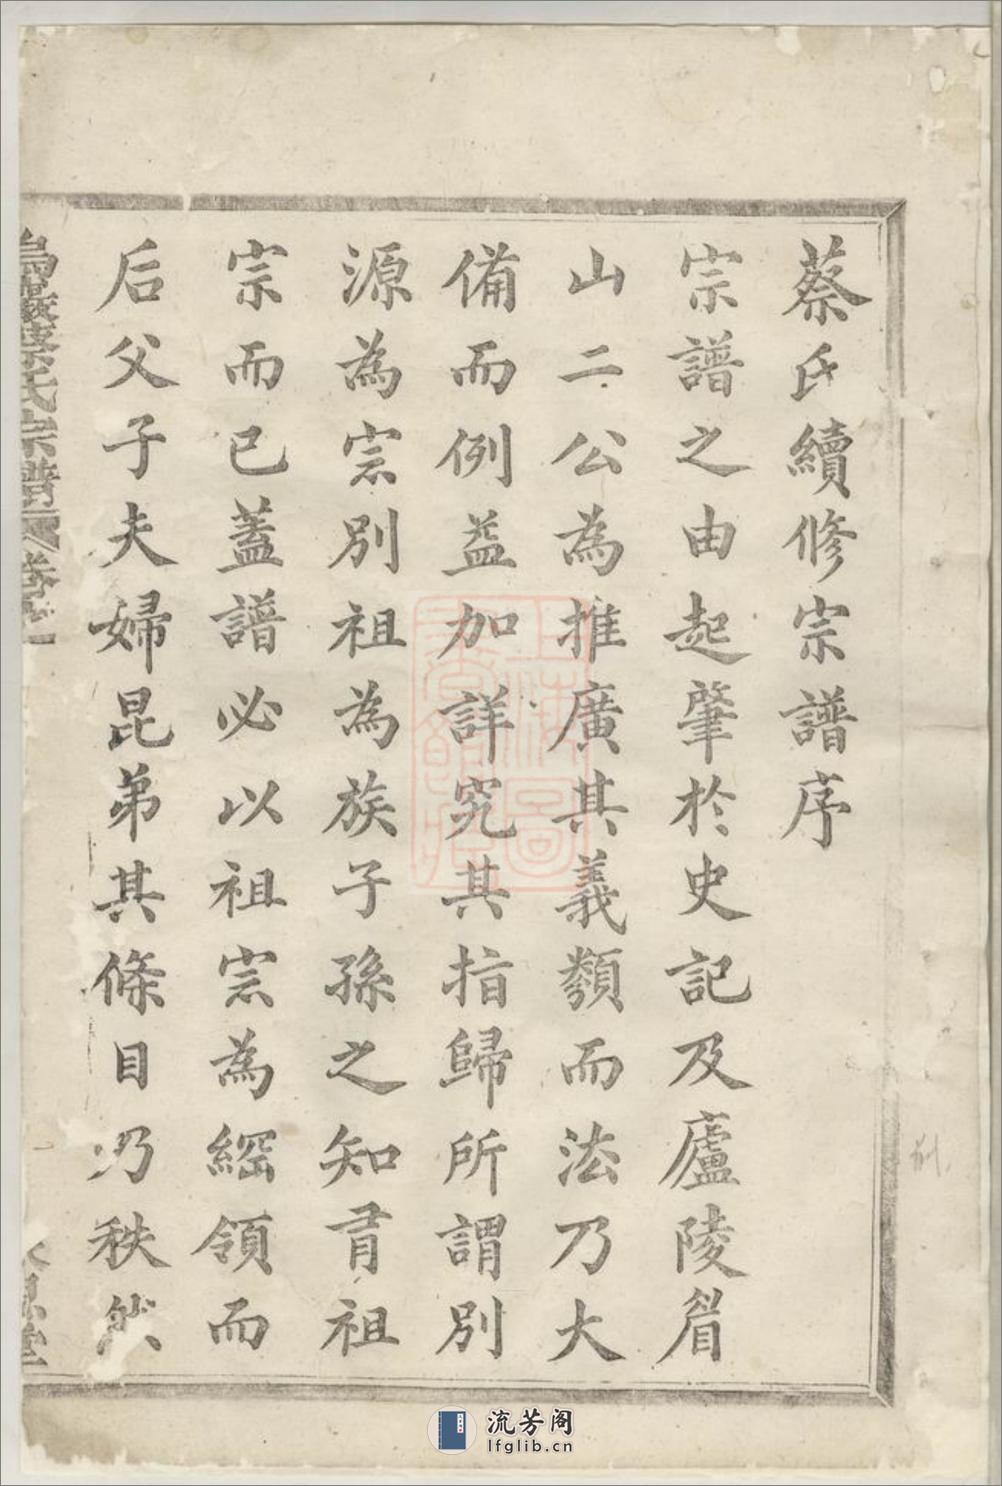 蔡氏續修宗譜序
宗譜之由起肇於史記及廬陵眉
山二公為推廣其義類而法乃大
備而例益加詳究其指歸所謂別
源為宗別祖為族子孫之知有祖
宗而已蓋譜必以祖宗為綱領而
后父子夫婦昆弟其條目乃秩然
蔡氏宗譜 卷
上海圖書館藏
流芳阁
lfglib.cn